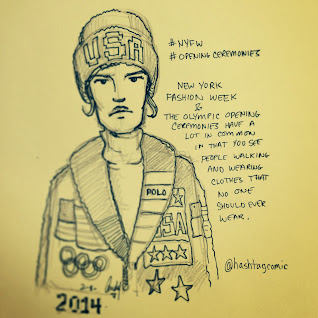 USA
#NYFW
#OPENING CEREMONIES
NEW YORK
FASHION WEEK
&
THE OLYMPIC OPENING
CEREMONIES HAVE A
LOT IN COMMON
IN THAT YOU SEE
PEOPLE WALKING
AND WEARING
CLOTHES THAT
NO ONE
SHOULD EVER
WEAR.
POLO
USA
@hashtagcomic
2014